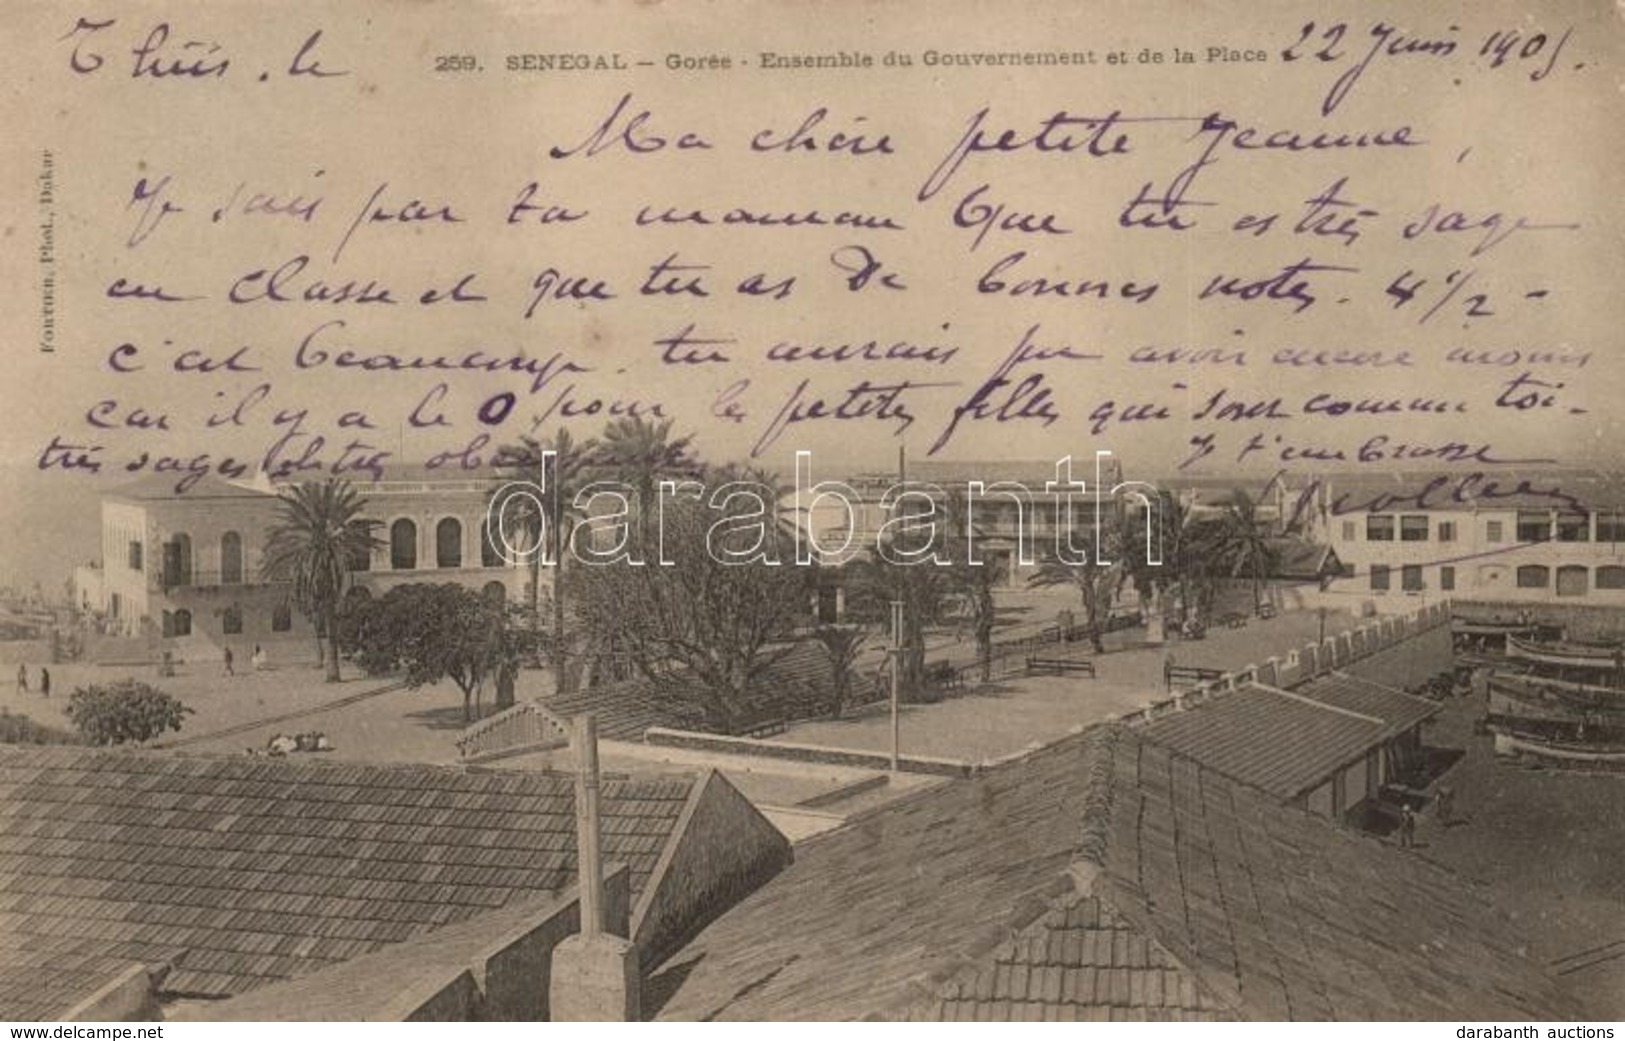 Thiès, le
259. SENEGAL — Gorée - Ensemble du Gouvernement et de la Place
22 Juin 1905.
Ma chère petite Jeanne,
Je sais par ta maman que tu es très sage
en classe et que tu as de bonnes notes. 4 1/2 -
c'est beaucoup. tu aurais pu avoir encore moins
car il y a le 0 pour les petites filles qui sont comme toi -
très sages et très
Je t'embrasse
FORTIER, Phot., Dakar
darabanth
www.delcampe.net
darabanth auctions